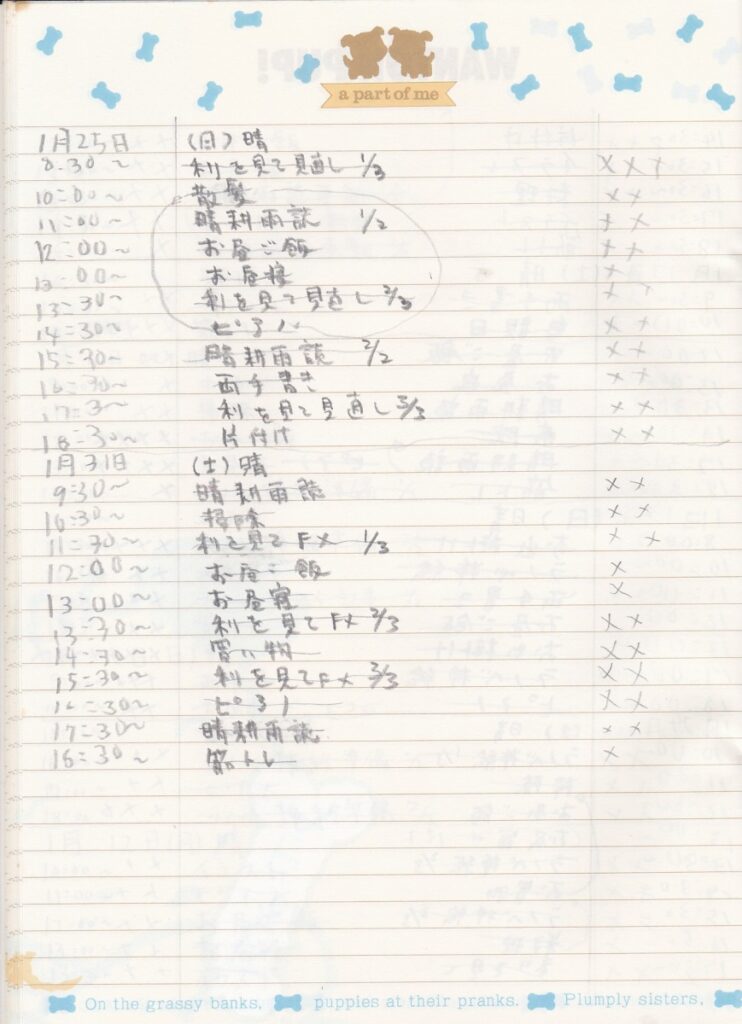 a part of me
1月25日 (日) 晴
8:30~ 利を見て見直し 1/3 ×××
10:00~ 散髪 ××
11:00~ 晴耕雨読 1/2 ××
12:00~ お昼ご飯 ××
13:00~ お昼寝 ×
13:30~ 利を見て見直し 2/3 ××
14:30~ ピアノ ××
15:30~ 晴耕雨読 2/2 ××
16:30~ 両手書き ××
17:3~ 利を見て見直し 3/3 ××
18:30~ 片付け ××
1月31日 (土) 晴
9:30~ 晴耕雨読 ××
10:30~ 掃除 ××
11:30~ 利を見て FX 1/3 ××
12:00~ お昼ご飯 ×
13:00~ お昼寝 ×
13:30~ 利を見て FX 2/3 ××
14:30~ 買い物 ××
15:30~ 利を見て FX 3/3 ××
16:30~ ピアノ ××
17:30~ 晴耕雨読 ××
18:30~ 筋トレ ×
On the grassy banks, puppies at their pranks. Plumply sisters,